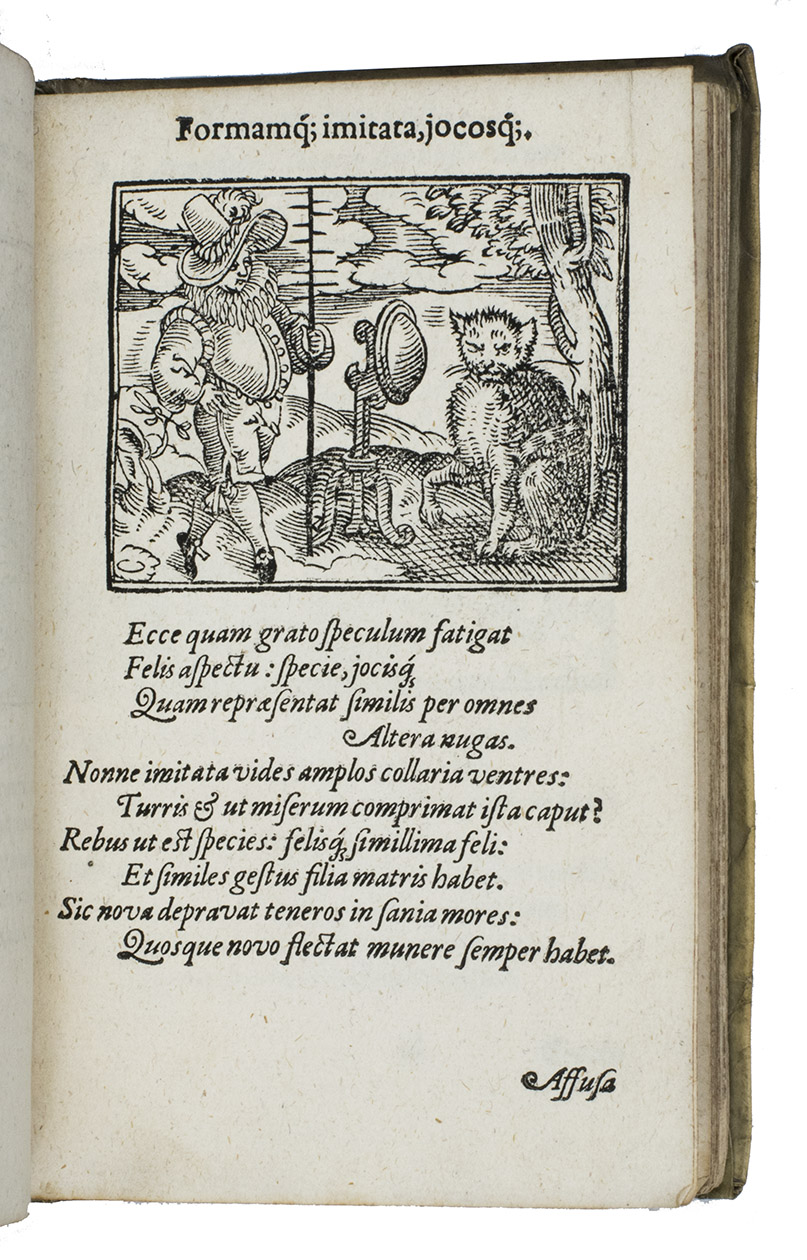 Formamq́; imitata, jocosq́;.
Ecce quam grato ſpeculum fatigat
Felis aſpectu : ſpecie, jocisq́;
Quam repræſentat ſimilis per omnes
Altera nugas.
Nonne imitata vides amplos collaria ventres:
Turris & ut miſerum comprimat iſta caput?
Rebus ut eſt ſpecies: felisq́; ſimillima feli:
Et ſimiles geſtus filia matris habet.
Sic nova depravat teneros in ſania mores:
Quosque novo flectat munere ſemper habet.
Affuſa